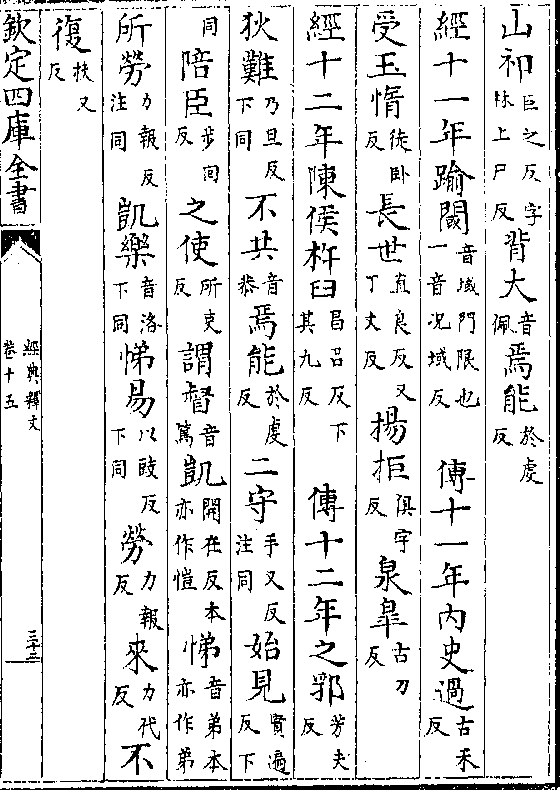 山祁巨之反字林上尸反背大音佩焉能於虔反
經十一年踰閾音域門限也一音况域反傳十一年内史過古禾反
受玉惰徒卧反長世直良反又丁丈反揚拒俱宇反泉臯古刀反
經十二年陳侯杵臼昌吕反下其九反傳十二年之郛芳夫反
狄難乃旦反下同不共音恭焉能於虔反二守手又反注同始見賢遍反下
同陪臣步回反之使所吏反謂督音篤凱開在反本亦作愷悌音弟本亦作弟
所勞力報反注同凱樂音洛下同悌易以豉反下同勞力報反來力代反不
復扶又反
欽定四庫全書
經典釋文
卷十五
三十三